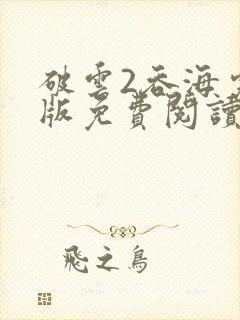 破雲2吞海
版免費閱讀
飛之鳥